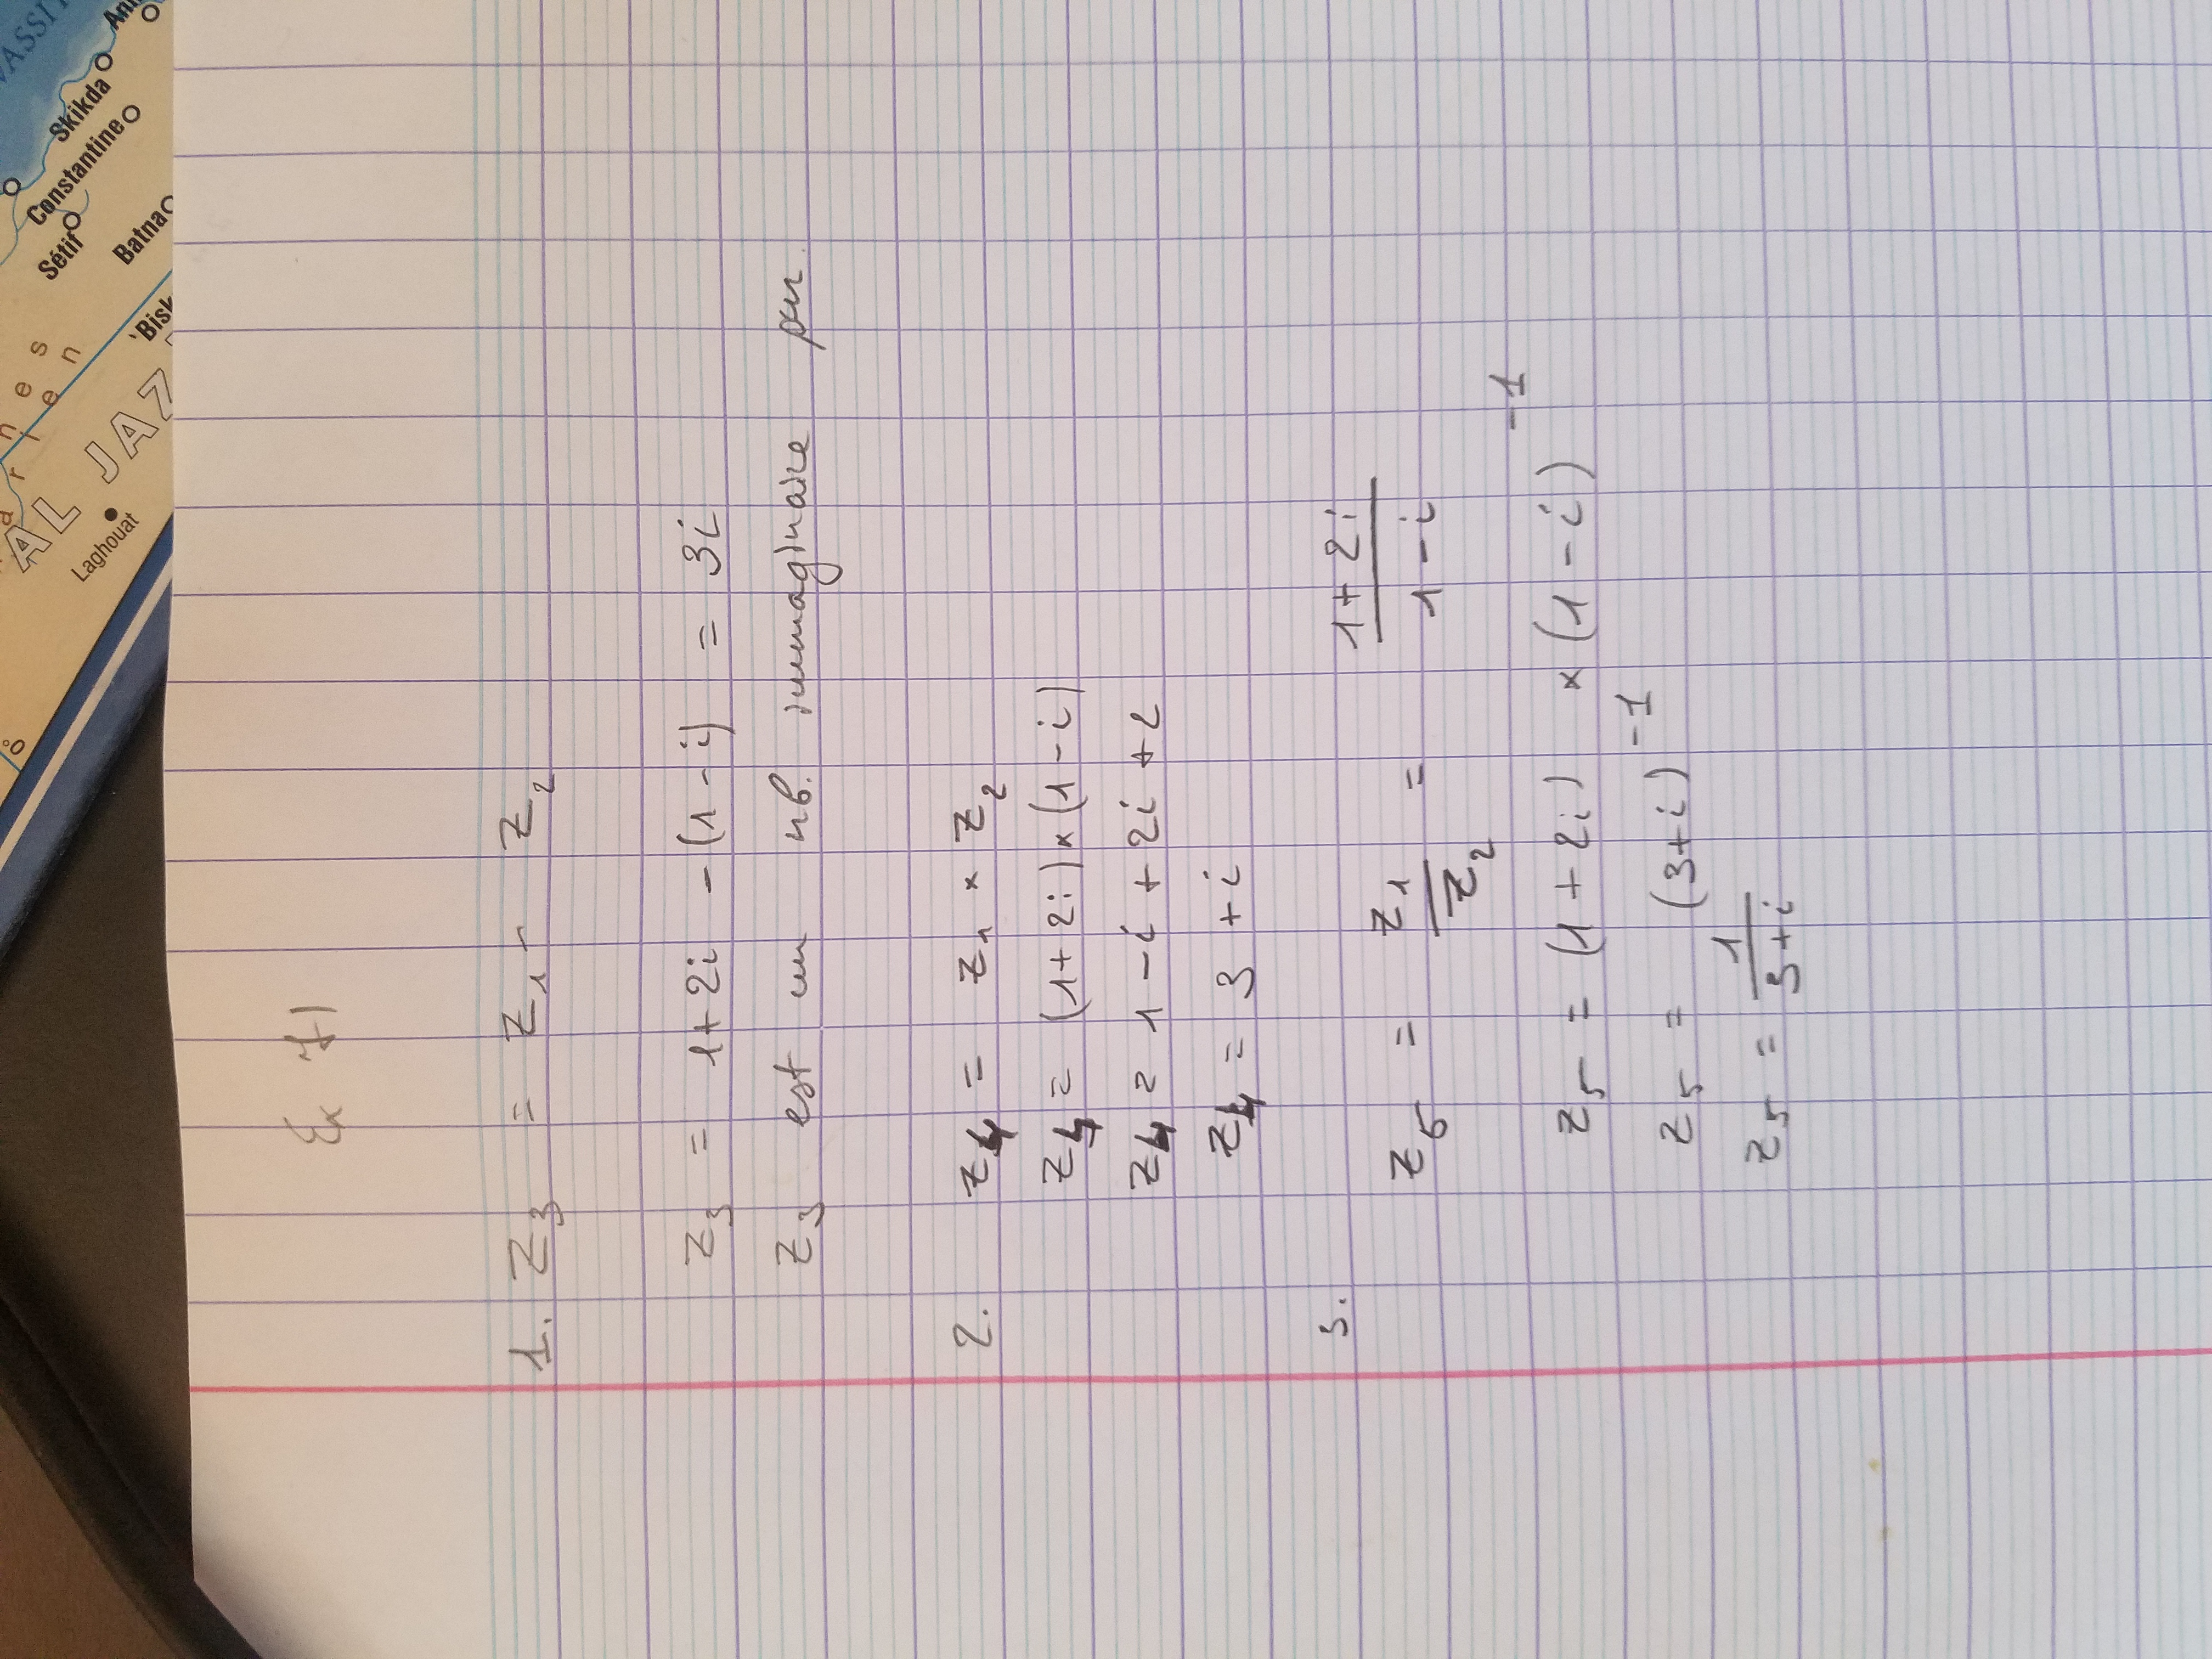 Ex 71
1. Z3 = Z1 - Z2
Z3 = 1+2i -(1-i) = 3i
Z3 est un nb. immaginaire pur.
2. Z4 = Z1 × Z2
Z4 = (1+2i)×(1-i)
Z4 = 1-i+2i+2
Z4 = 3+i
3. Z5 = Z1/Z2 = (1+2i)/(1-i)
Z5 = (1+2i) × (1-i)^-1
Z5 = (3+i)^-1
Z5 = 1/(3+i)
ASSI
Ann
Skikda
Constantine
Sétif
Batna
Bisk
AL JAZ
Laghouat